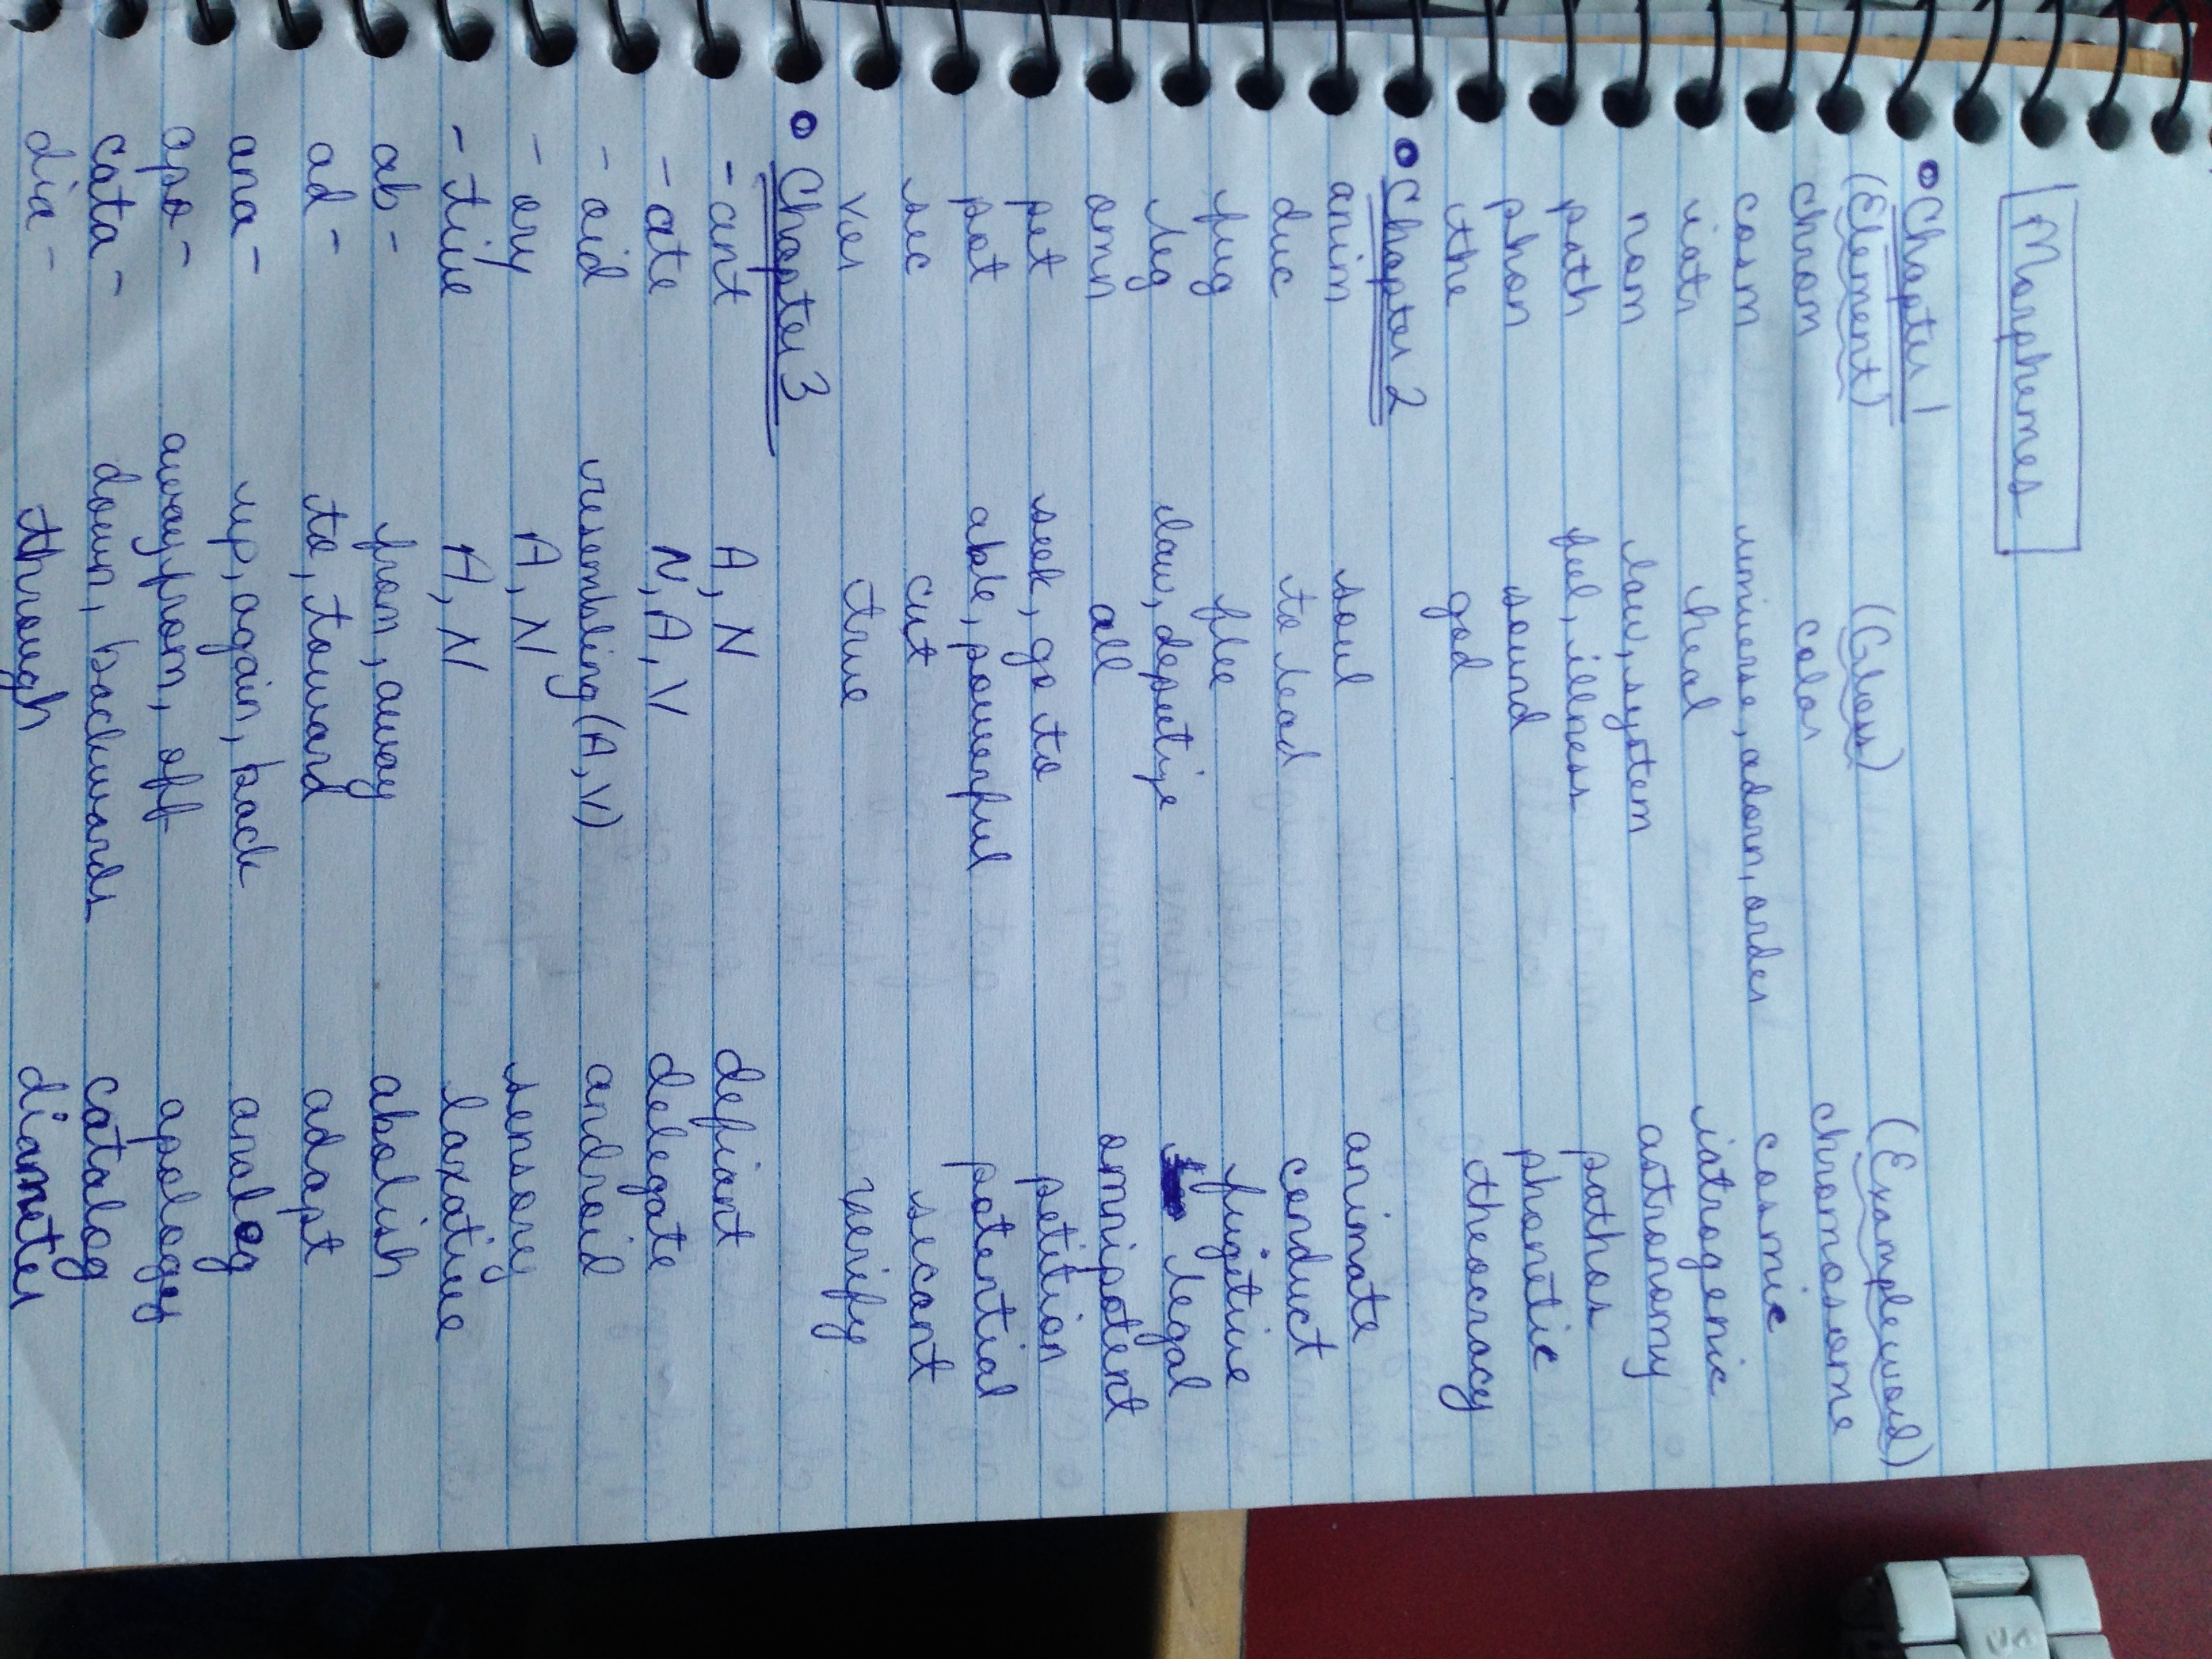 Morphemes
• Chapter 1
(Element) (Gloss) (Example word)
chrom color chromosome
cosm universe, adorn, order cosmic
iatr heal iatrogenic
nom law, system astronomy
path feel, illness pathos
phon sound phonetic
the god theocracy
• Chapter 2
anim soul animate
duc to lead conduct
fug flee fugitive
leg law, deputize legal
omn all omnipotent
pet seek, go to petition
pot able, powerful potential
sec cut secant
ver true verify
• Chapter 3
-ant A, N defiant
-ate N, A, V delegate
-oid resembling (A, V) android
-ory A, N sensory
-tive A, N laxative
ab- from, away abolish
ad- to, toward adapt
ana- up, again, back analog
apo- away from, off apology
cata- down, backwards catalog
dia- through diameter